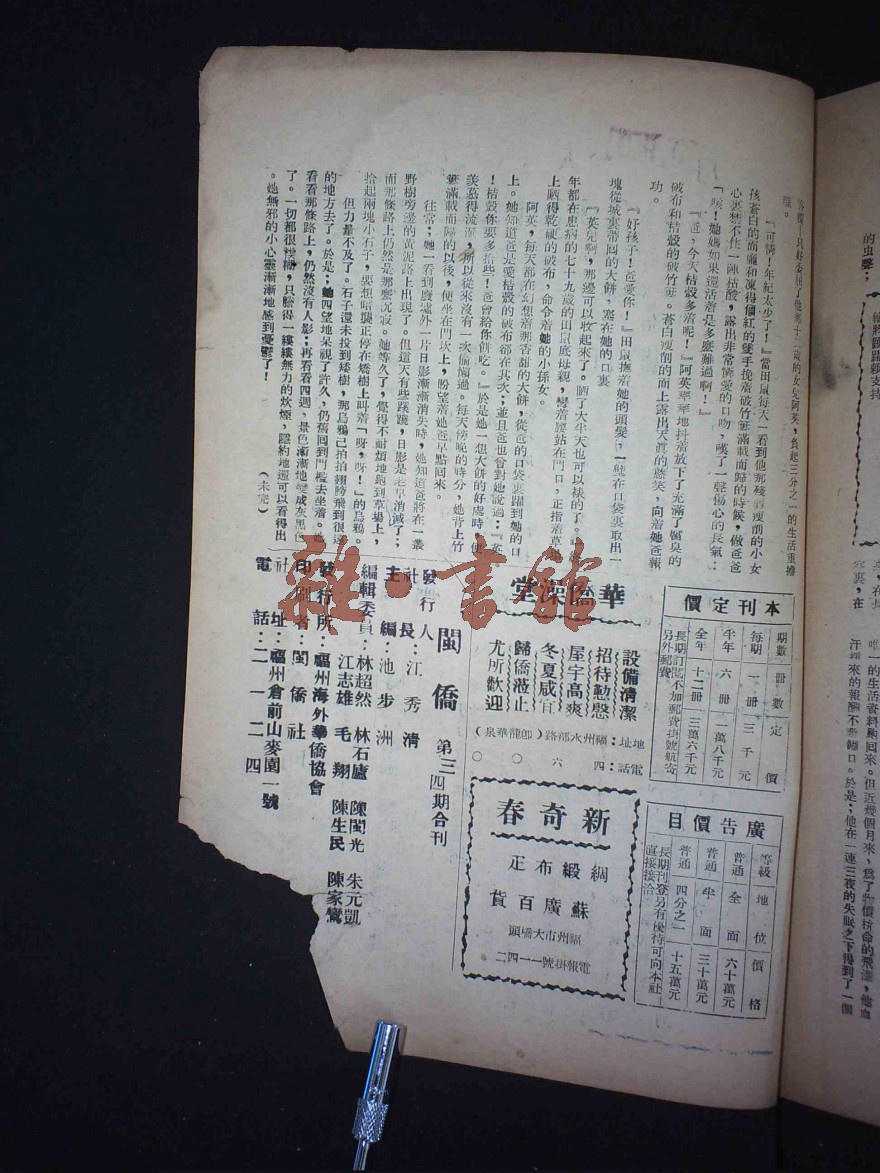 『可憐！年紀太少了！』當田鼠每天一看到他那殘弱瘦削的小女
孩蒼白的面龐和凍得個紅的雙手拖着破竹筐滿載而歸的時候，做爸爸
心裏禁不住一陣枯酸，露出非常憐愛的口吻，嘆了一聲傷心的長氣：
『唉！她媽如果還活着是多麼難過啊！』
『爸，今天枯殼多着呢！』阿英牽牽地抖着放下了充滿了腐臭的
破布和枯殼的破竹筐。蒼白瘦削的面上露出天真的憨笑，向着她爸報
功。
『好孩子！爸愛你！』田鼠撫着她的頭髮，一壁在口袋裏取出一
塊從城裏帶囘的大餅，塞在她的口裏
『英兒啊，那邊可以收起來了。晒了大半天也可以裱的了。』
年都在患病的七十九歲的田鼠底母親，彎着腰站在門口，正指着草場
上晒得乾硬的破布，命令着她的小孫女。
阿英，每天都在幻想着那香甜的大餅，從爸的口袋裏躍到她的口
上。她知道爸是愛枯殼的破布都在其次；並且爸也曾對她說過：『英
！枯殼你要多拾些！爸會給你餅吃。』於是她一想大餅的好處時，便
羨慕得流涎，所以從來沒有一次偷懶過。每天傍晚的時分，她背上竹
筐滿載而歸的以後，便坐在門坎上，盼望着她爸早點回來。
往常；她一看到廢墟外一片日影漸漸消失時，她知道爸將在一叢
野樹旁邊的黃泥路上出現了。但這天有些蹊蹺，日影是老早消滅了；
而那條路上仍然是那麼沉寂。她等久了，覺得不耐煩地跑到草場上，
拾起兩塊小石子，要想暗襲正停在矮樹上叫着「呀，呀！」的烏鴉。
但力量不及了。石子還未投到矮樹，那烏鴉已拍拍翅膀飛到很遠
的地方去了。於是；她四望地呆視了許久，仍舊囘到門檻去坐着。她
看看那條路上，仍然沒有人影；再看看四週，景色漸漸地變成灰黑色
了。一切都很糢糊，只賸得一縷縷無力的炊煙，隱約地還可以看得出
。她無邪的小心靈漸漸地感到憂鬱了！
（未完）
本刊定價
期數 冊數 定價
每期 一冊 三千元
半年 六冊 一萬八千元
全年 十二冊 三萬六千元
長期訂閱不加郵費掛號航寄
另外郵費
廣告價目
等級 地位 價格
普通 全面 六十萬元
普通 半面 三十萬元
普通 四分之一 十五萬元
長期刊登另有優待可向本社
直接接洽
華僑澡堂
設備清潔
招待懃慇
屋宇高爽
冬夏咸宜
歸僑涖止
尤所歡迎
地址：福州水部路（卽龍華泉）
電話：四六〇〇
新奇春
綢緞布疋
蘇廣百貨
福州市大橋頭
電報掛號一一四二
閩僑 第三四期合刊
發行人
社長：江秀清
主編：池步洲
編輯委員：林超然 林石廬 陳閩光 朱元凱
江志雄 毛翔 陳生民 陳家鸞
發行所：福州海外華僑協會
印刷者：閩僑社
社址：福州倉前山麥園一號
電話：二一二四
雜·書館